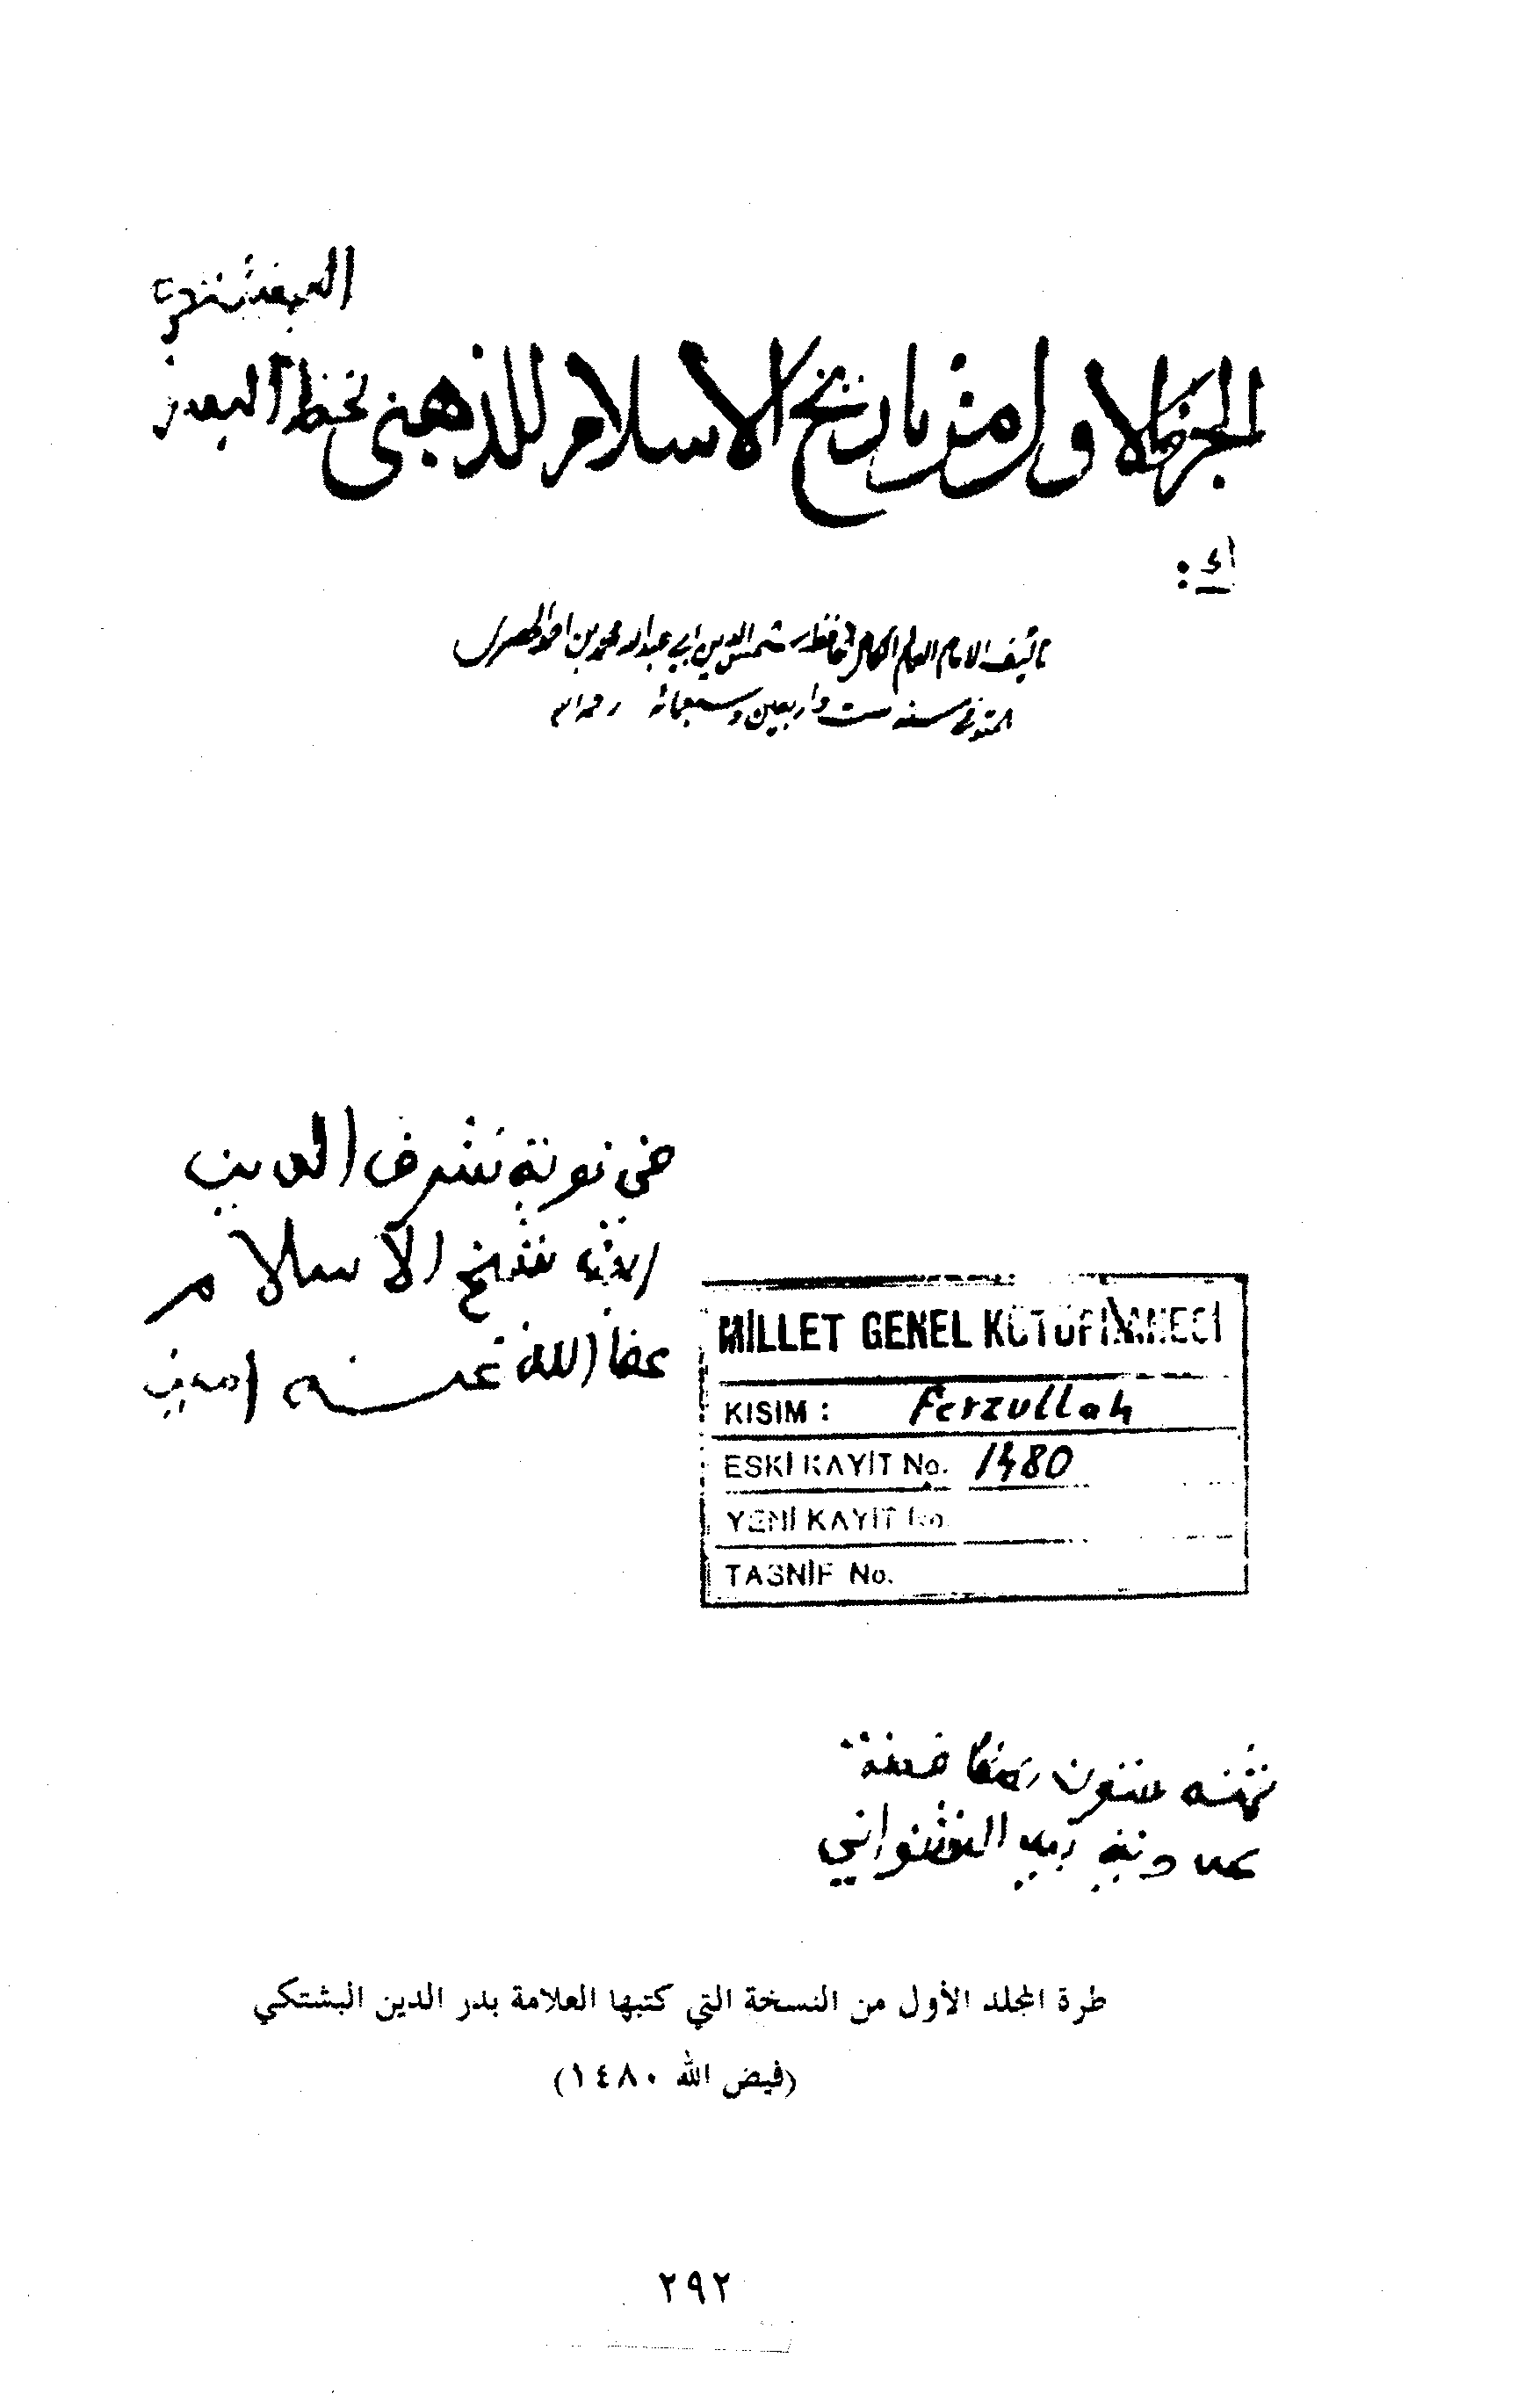 البشتكي
الجزء الاول من تاريخ الاسلام للذهبي بخط البدر
تأليف الامام العالم الحافظ شمس الدين ابي عبدالله محمد بن احمد
المتوفى سنة ست واربعين وسبعمائة رحمه الله
في نوبة شرف الدين
ابن شيخ الاسلام
عفا الله عنه امين
MİLLET GENEL KÜTÜPHANESİ
KISIM : Feyzullah
ESKİ KAYIT No. 1480
YENİ KAYIT No.
TASNİF No.
طرة المجلد الأول من النسخة التي كتبها العلامة بدر الدين البشتكي
(فيض الله ١٤٨٠)
٢٩٢